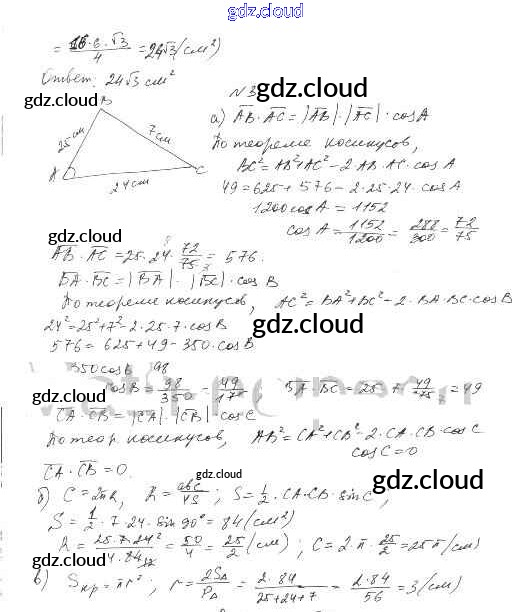 gdz.cloud
= 16·6·√3 / 4 = 24√3 (см²)
Ответ: 24√3 см²
gdz.cloud
N 3
gdz.cloud
B
25 см
7 см
A
C
24 см
а) AB · AC = |AB| · |AC| · cos A
По теореме косинусов,
BC² = AB² + AC² - 2·AB·AC·cos A
49 = 625 + 576 - 2·25·24·cos A
1200 cos A = 1152
cos A = 1152/1200 = 288/300 = 72/75
gdz.cloud
AB · AC = 25·24· 72/75 = 576.
BA · BC = |BA| · |BC| · cos B
По теореме косинусов, AC² = BA² + BC² - 2·BA·BC·cos B
24² = 25² + 7² - 2·25·7·cos B
gdz.cloud
576 = 625 + 49 - 350·cos B
350 cos B = 98
cos B = 98/350 = 49/175, BA · BC = 25·7· 49/175 = 49
CA · CB = |CA| · |CB| · cos C
gdz.cloud
По теор косинусов, AB² = CA² + CB² - 2·CA·CB·cos C
cos C = 0
CA · CB = 0.
gdz.cloud
б) C = 2πR, R = abc/4S; S = 1/2 · CA·CB·sin C,
gdz.cloud
S = 1/2 · 7·24·sin 90° = 84 (см²)
R = 25·7·24/4·84 = 50/4 = 25/2 (см); C = 2·π· 25/2 = 25π (см)
gdz.cloud
gdz.cloud
в) Sкр = πr²; r = 2S△/P△ = 2·84/25+24+7 = 2·84/56 = 3 (см)
gdz.cloud